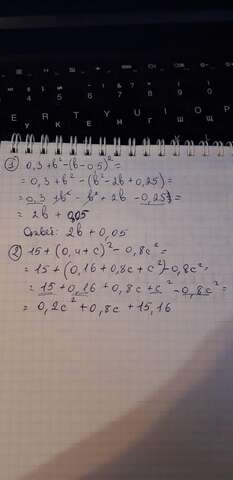 E R T Y U I O P
У К Е Н Г Ш Щ
1) 0,3+b²-(b-0,5)²=
= 0,3+b²-(b²-2b+0,25)=
= 0,3+b²-b²+2b-0,25=
= 2b+0,05
Ответ: 2b+0,05
2) 15+(0,4+c)²-0,8c²=
= 15+(0,16+0,8c+c²)-0,8c²=
= 15+0,16+0,8c+c²-0,8c²=
= 0,2c²+0,8c+15,16